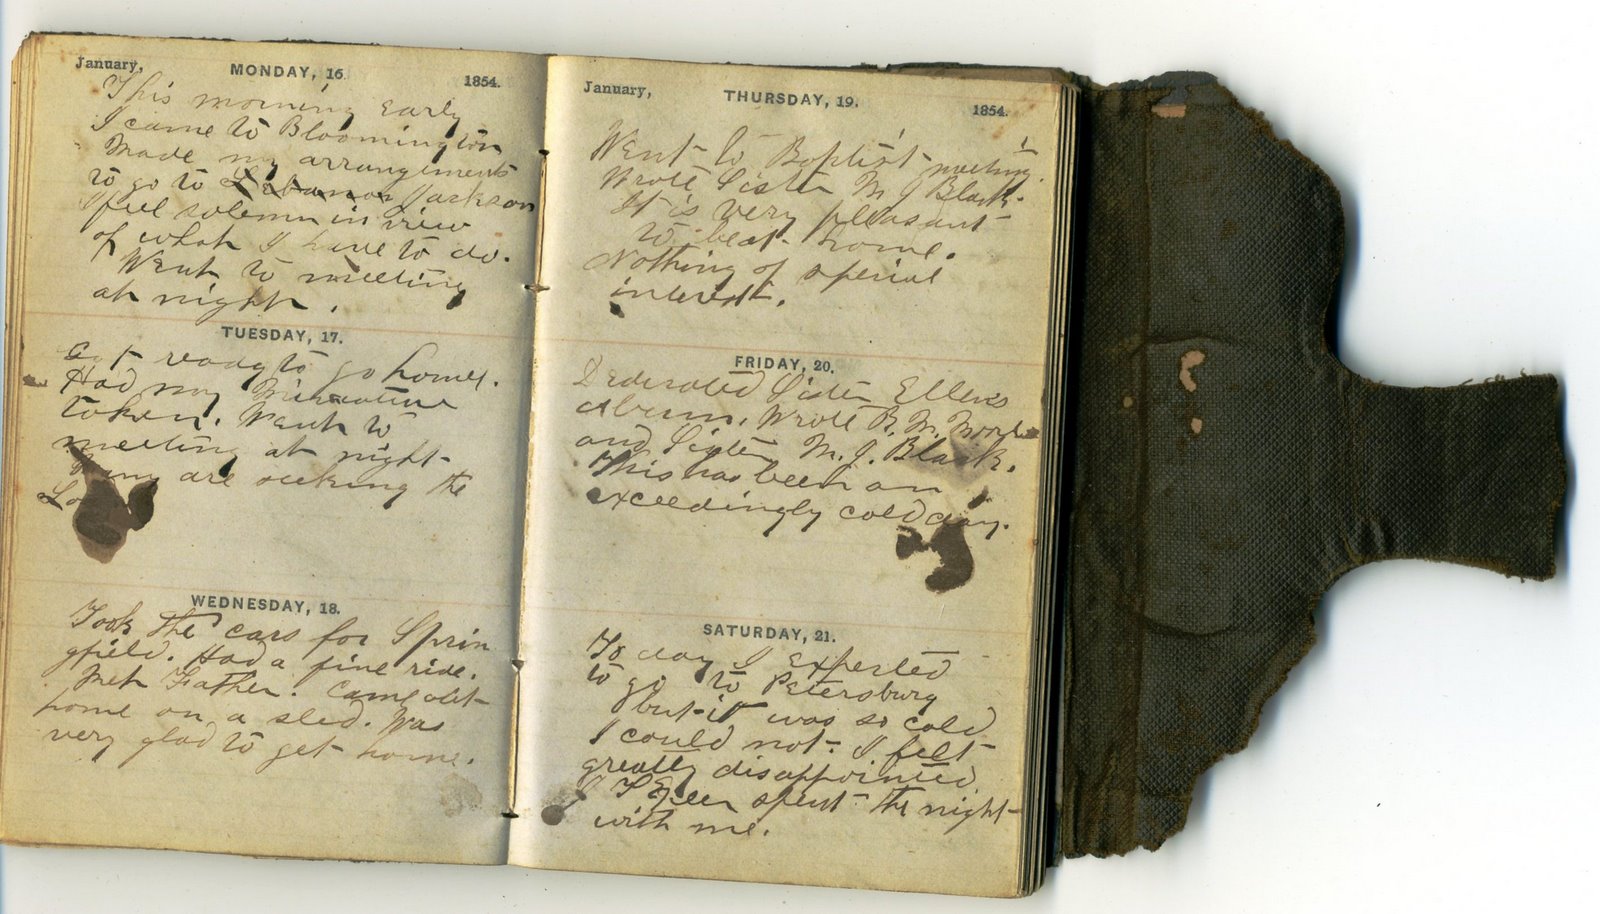 January, MONDAY, 16. 1854.
This morning Early
I came to Bloomington
Made my arrangements
to go to Lebanon Jackson
I feel solemn in view
of what I have to do.
Went to meeting
at night.
TUESDAY, 17.
Got ready to go home.
Had my Miniature
taken. Went to
meeting at night
Many are seeking the
WEDNESDAY, 18.
Took the cars for Sprin
gfield. Had a fine ride.
Met Father. Came out
home on a sled. Was
very glad to get home.
January, THURSDAY, 19. 1854.
Went to Baptist meeting.
Wrote Sister M J Black.
It is very pleasant
to be at home.
Nothing of special
interest.
FRIDAY, 20.
Dedicated Sister Ellens
Album. Wrote B. M.
and Sister M. J. Black.
This has been an
exceedingly cold day.
SATURDAY, 21.
To day I expected
to go to Petersburg
but it was so cold
I could not. I felt
greatly disappointed
spent the night
with me.